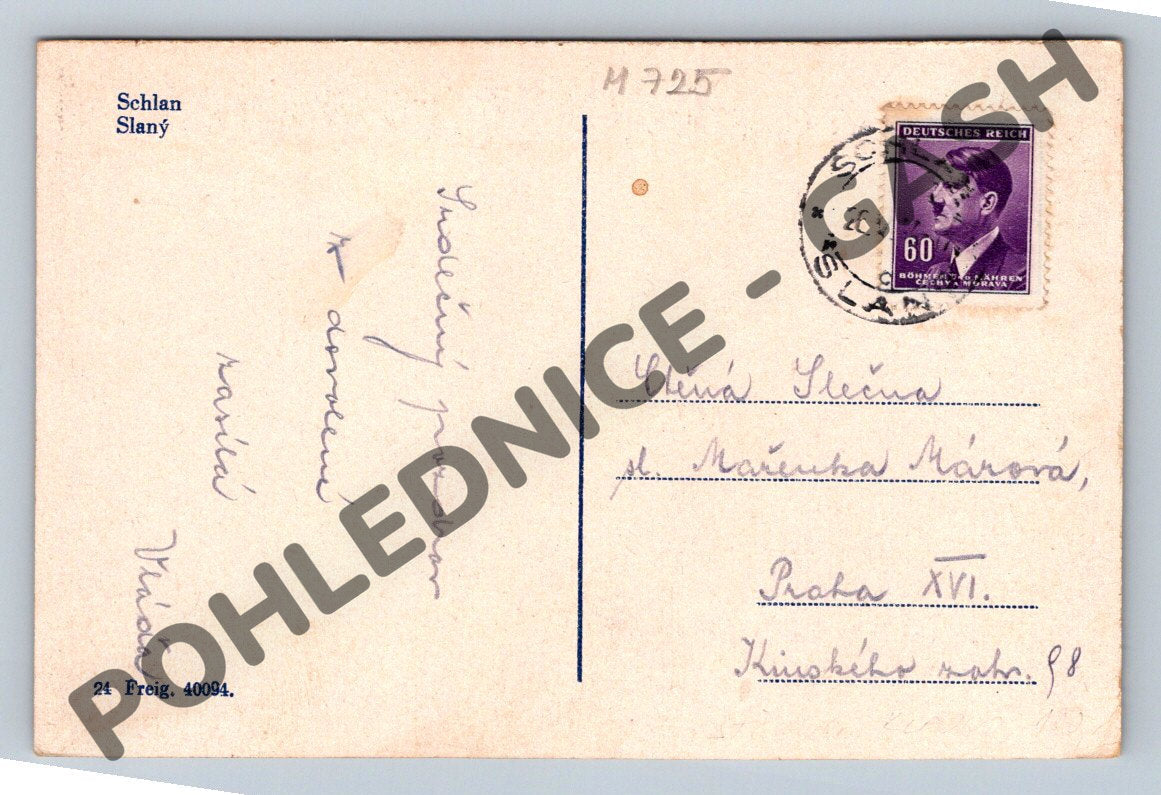 Schlan
Slaný
M 725
DEUTSCHES REICH
60
BÖHMEN UND MÄHREN
ČECHY A MORAVA
SLANÝ
Srdečný pozdrav
z dovolené
zasílá
Vláďa
Ctěná Slečna
sl. Mařenka Márová,
Praha XVI.
Kinského zahr. 98
24 Freig. 40094.
POHLEDNICE - GASH